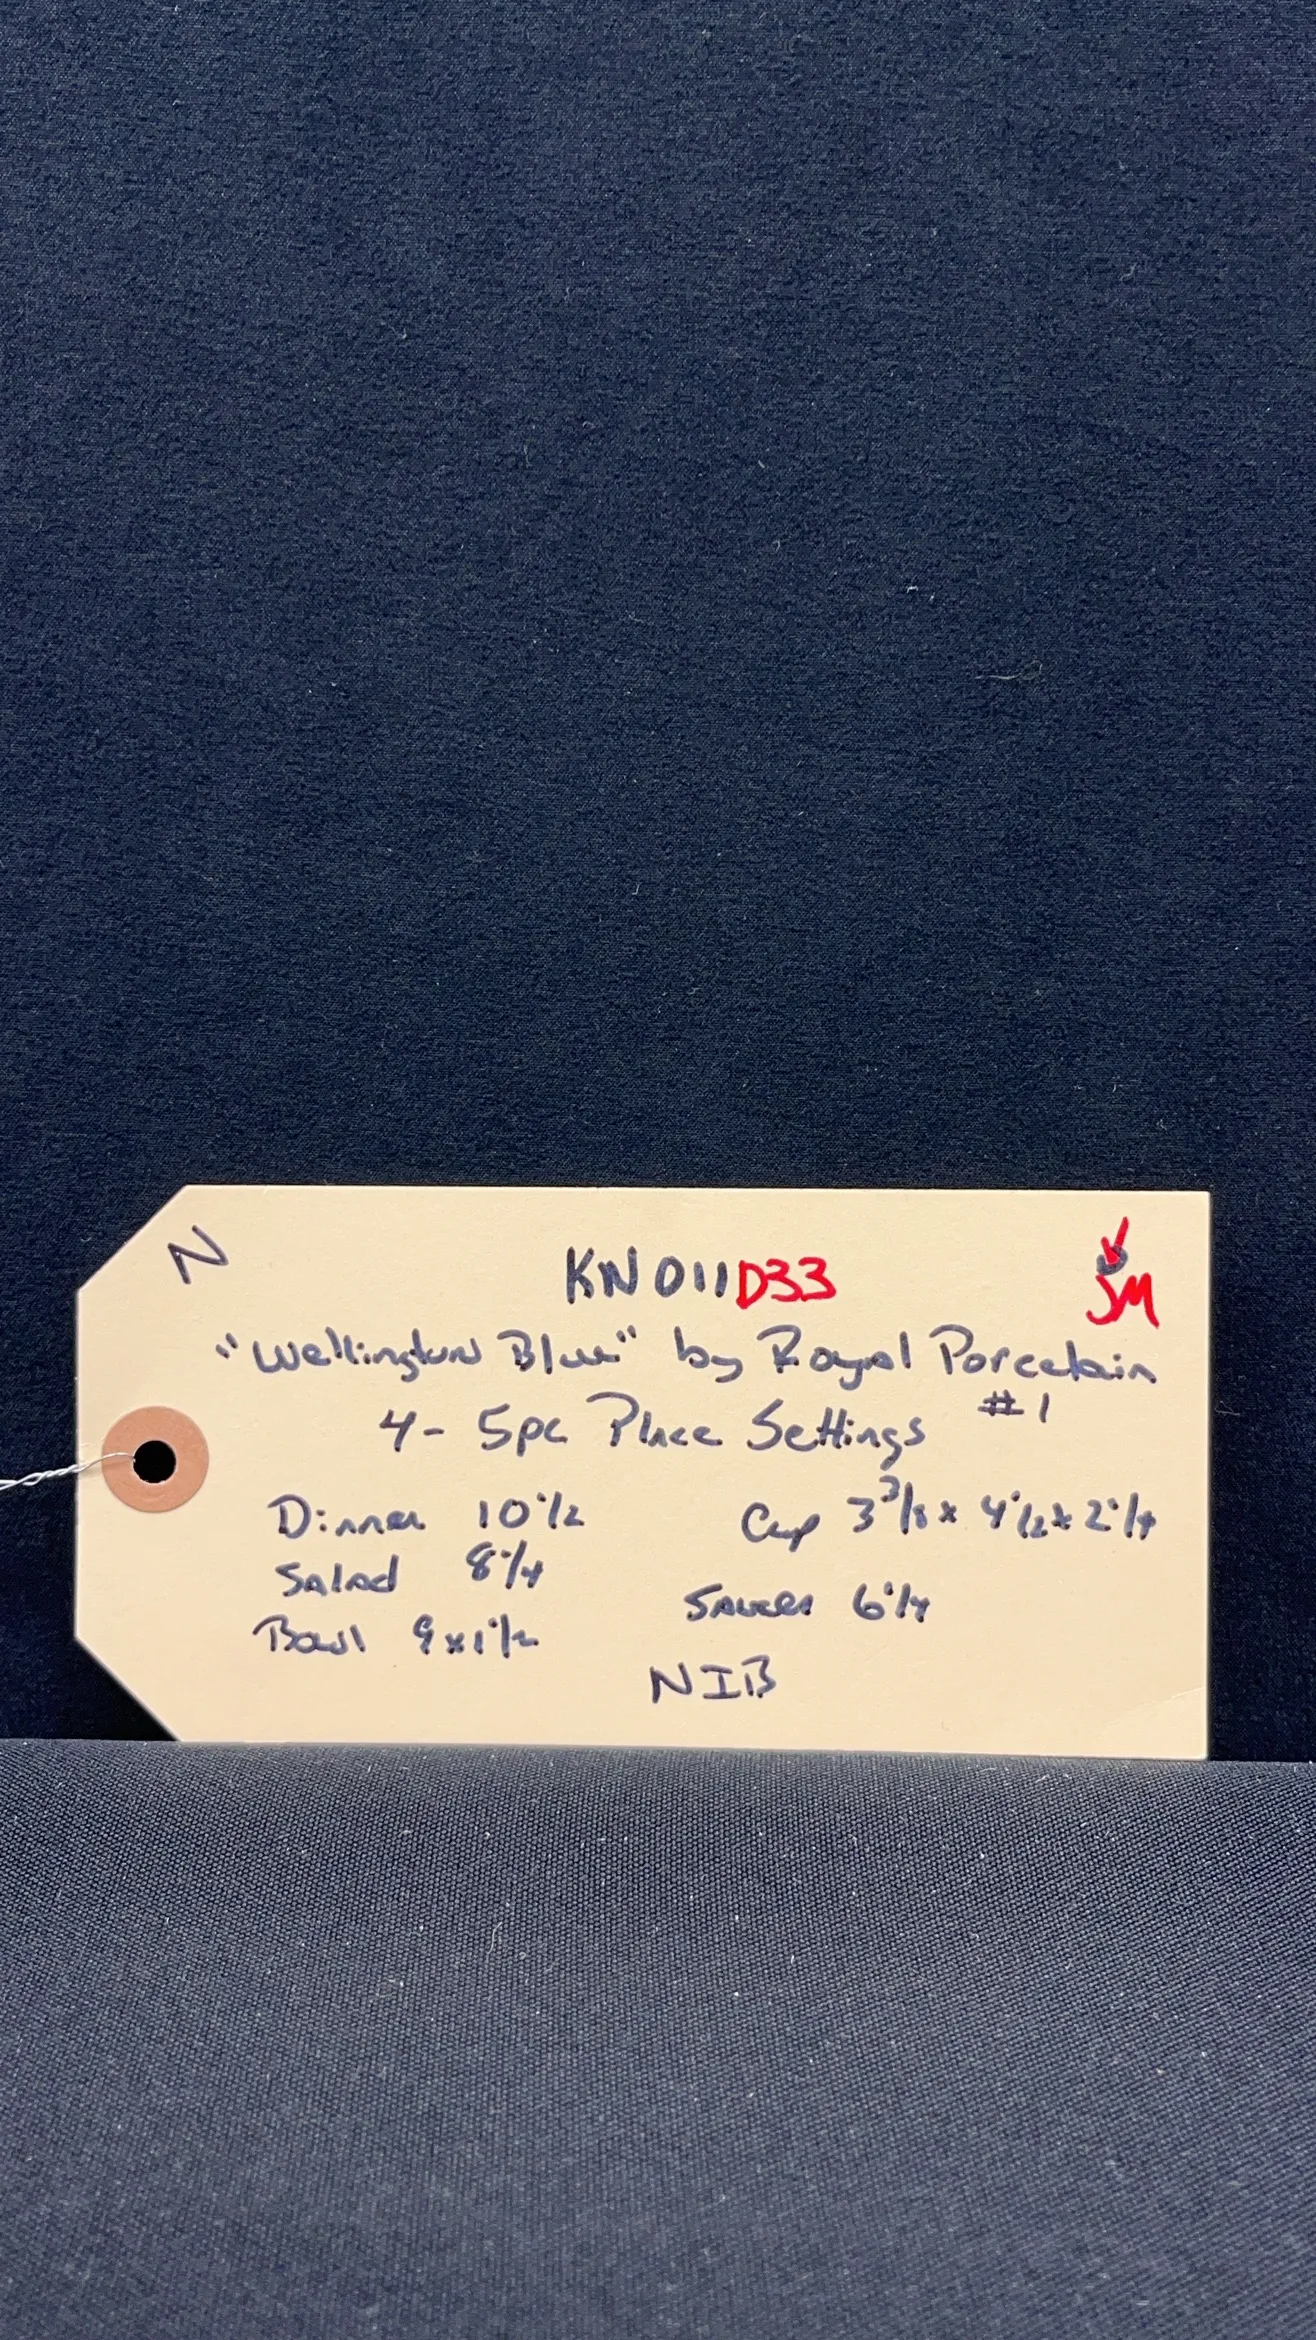 N
KN011D33
JM
"Wellington Blue" by Royal Porcelain
#1
4- 5pc Place Settings
Dinner 10 1/2
Cup 3 3/8 x 4 1/2 x 2 1/4
Salad 8 1/4
Saucer 6 1/4
Bowl 9 x 1 1/2
NIB